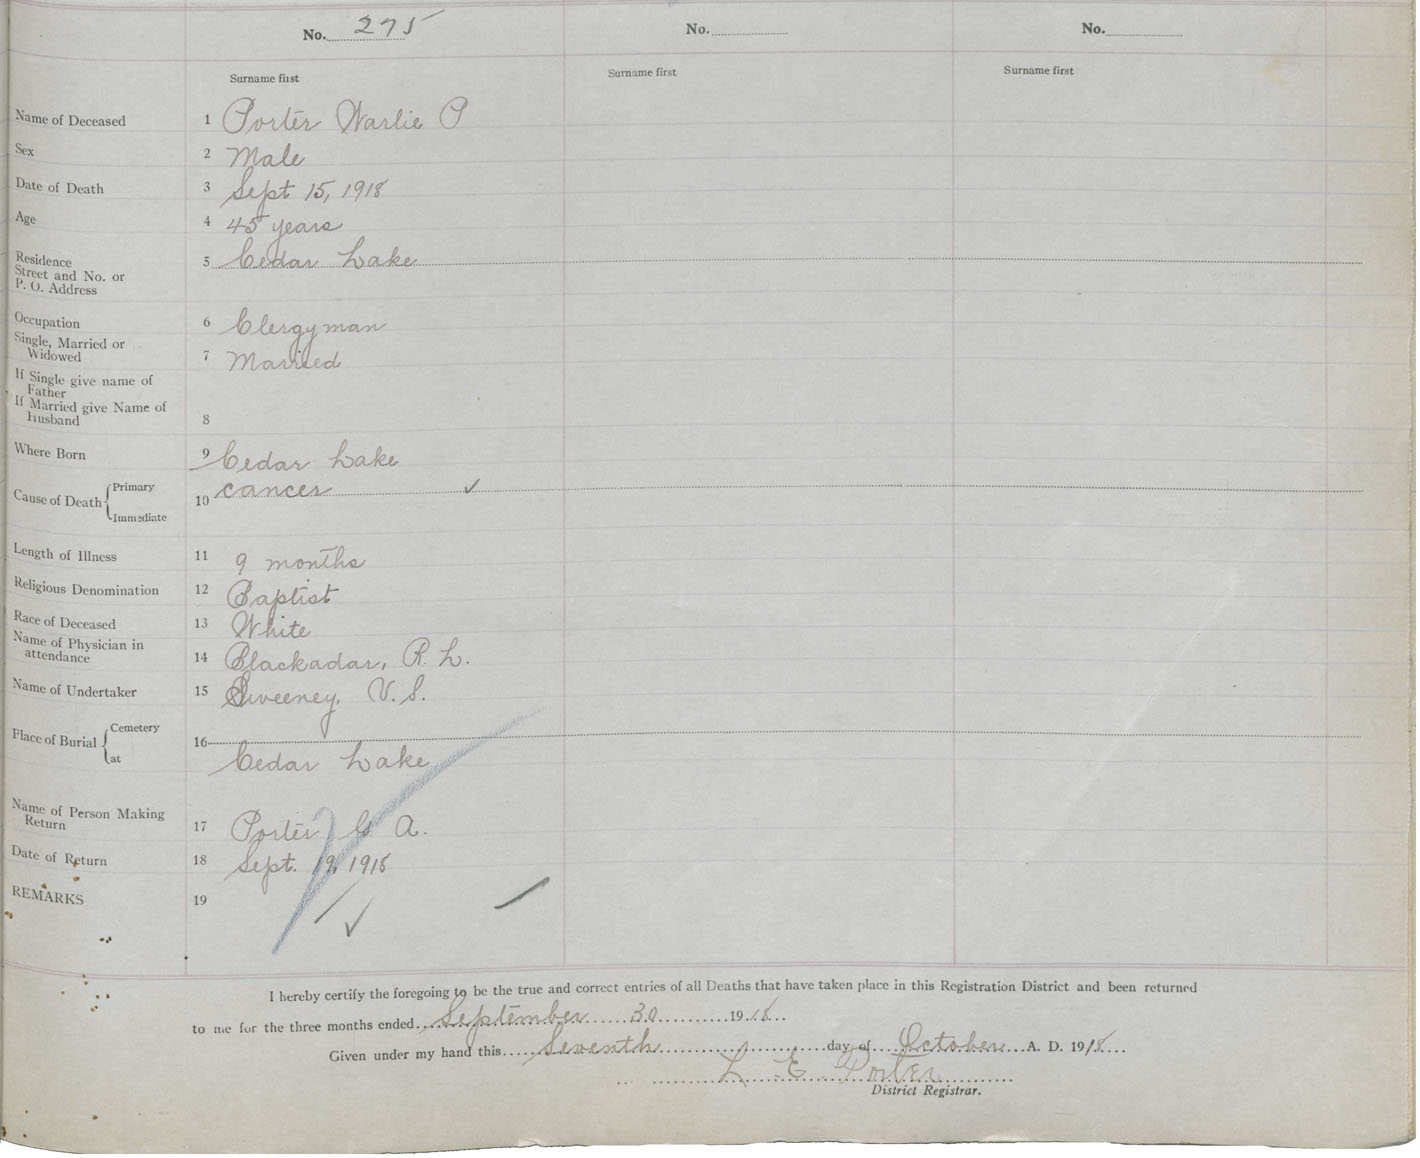 No. 275 No. No.
Surname first Surname first Surname first
Name of Deceased 1 Porter Warlie P
Sex 2 Male
Date of Death 3 Sept 15, 1918
Age 4 45 years
Residence 5 Cedar Lake
Street and No. or
P. O. Address
Occupation 6 Clergyman
Single, Married or
Widowed 7 Married
If Single give name of
Father
If Married give Name of
Husband 8
Where Born 9 Cedar Lake
Cause of Death { Primary 10 cancer ✓
Immediate
Length of Illness 11 9 months
Religious Denomination 12 Baptist
Race of Deceased 13 White
Name of Physician in
attendance 14 Blackadar, R. L.
Name of Undertaker 15 Sweeney, V. S.
Place of Burial { Cemetery 16
at Cedar Lake
Name of Person Making
Return 17 Porter G A.
Date of Return 18 Sept. 19, 1918
REMARKS 19
I hereby certify the foregoing to be the true and correct entries of all Deaths that have taken place in this Registration District and been returned
to me for the three months ended September 30 1918
Given under my hand this Seventh day of October A. D. 1918
L. E. Porter
District Registrar.